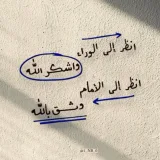 انظر إلى الوراء
واشكر الله
انظر إلى الأمام
وثق بالله